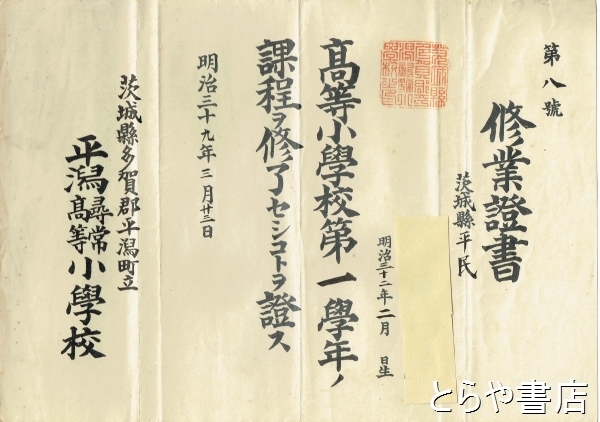 第八號
修業證書
茨城縣平民
明治三十二年二月 日生
高等小學校第一學年ノ
課程ヲ修了セシコトヲ證ス
明治三十九年三月廿三日
茨城縣多賀郡平潟町立
平潟尋常高等小學校
とらや書店